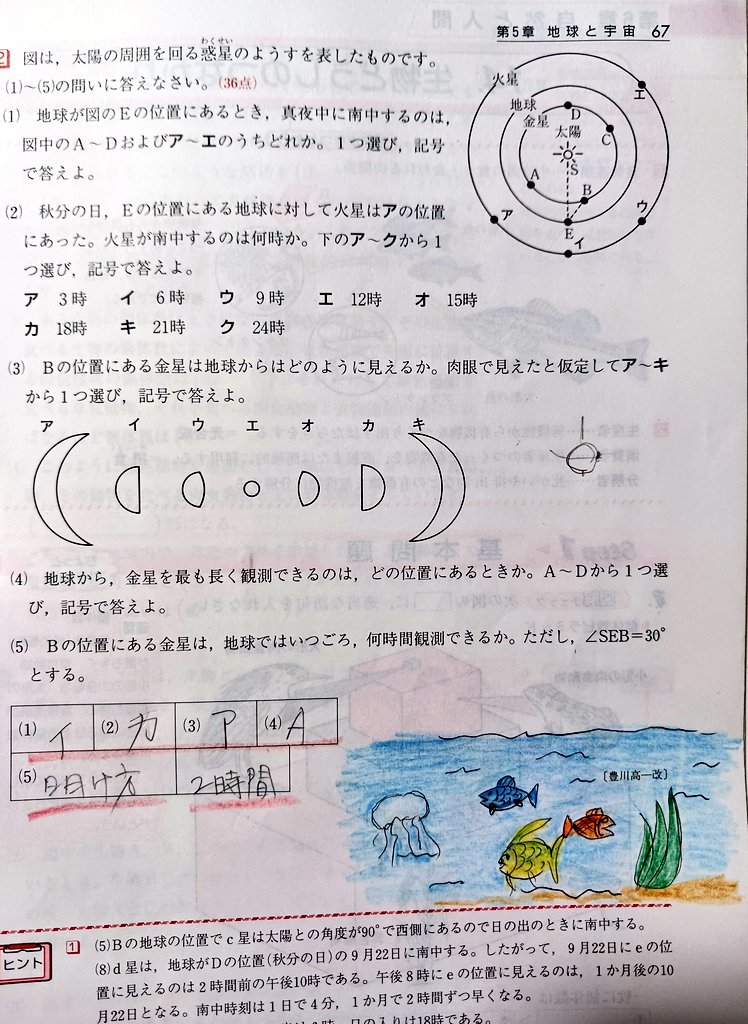 第5章 地球と宇宙 67
2 図は，太陽の周囲を回る惑星のようすを表したものです。
わくせい
(1)～(5)の問いに答えなさい。(36点)
(1) 地球が図のEの位置にあるとき，真夜中に南中するのは，
図中のA～Dおよびア～エのうちどれか。1つ選び，記号
で答えよ。
火星
地球
金星
太陽
S
A
B
C
D
E
ア
イ
ウ
エ
(2) 秋分の日，Eの位置にある地球に対して火星はアの位置
にあった。火星が南中するのは何時か。下のア～クから1
つ選び，記号で答えよ。
ア 3時 イ 6時 ウ 9時 エ 12時 オ 15時
カ 18時 キ 21時 ク 24時
(3) Bの位置にある金星は地球からはどのように見えるか。肉眼で見えたと仮定してア～キ
から1つ選び，記号で答えよ。
ア イ ウ エ オ カ キ
(4) 地球から，金星を最も長く観測できるのは，どの位置にあるときか。A～Dから1つ選
び，記号で答えよ。
(5) Bの位置にある金星は，地球ではいつごろ，何時間観測できるか。ただし，∠SEB＝30°
とする。
(1) イ (2) カ (3) ア (4) A
(5) 明け方 2時間
〔豊川高一改〕
ヒント
1 (5)Bの地球の位置でc星は太陽との角度が90°で西側にあるので日の出のときに南中する。
(8)d星は，地球がDの位置(秋分の日)の9月22日に南中する。したがって，9月22日にeの位
置に見えるのは2時間前の午後10時である。午後8時にeの位置に見えるのは，1か月後の10
月22日となる。南中時刻は1日で4分，1か月で2時間ずつ早くなる。
日の入りは18時である。